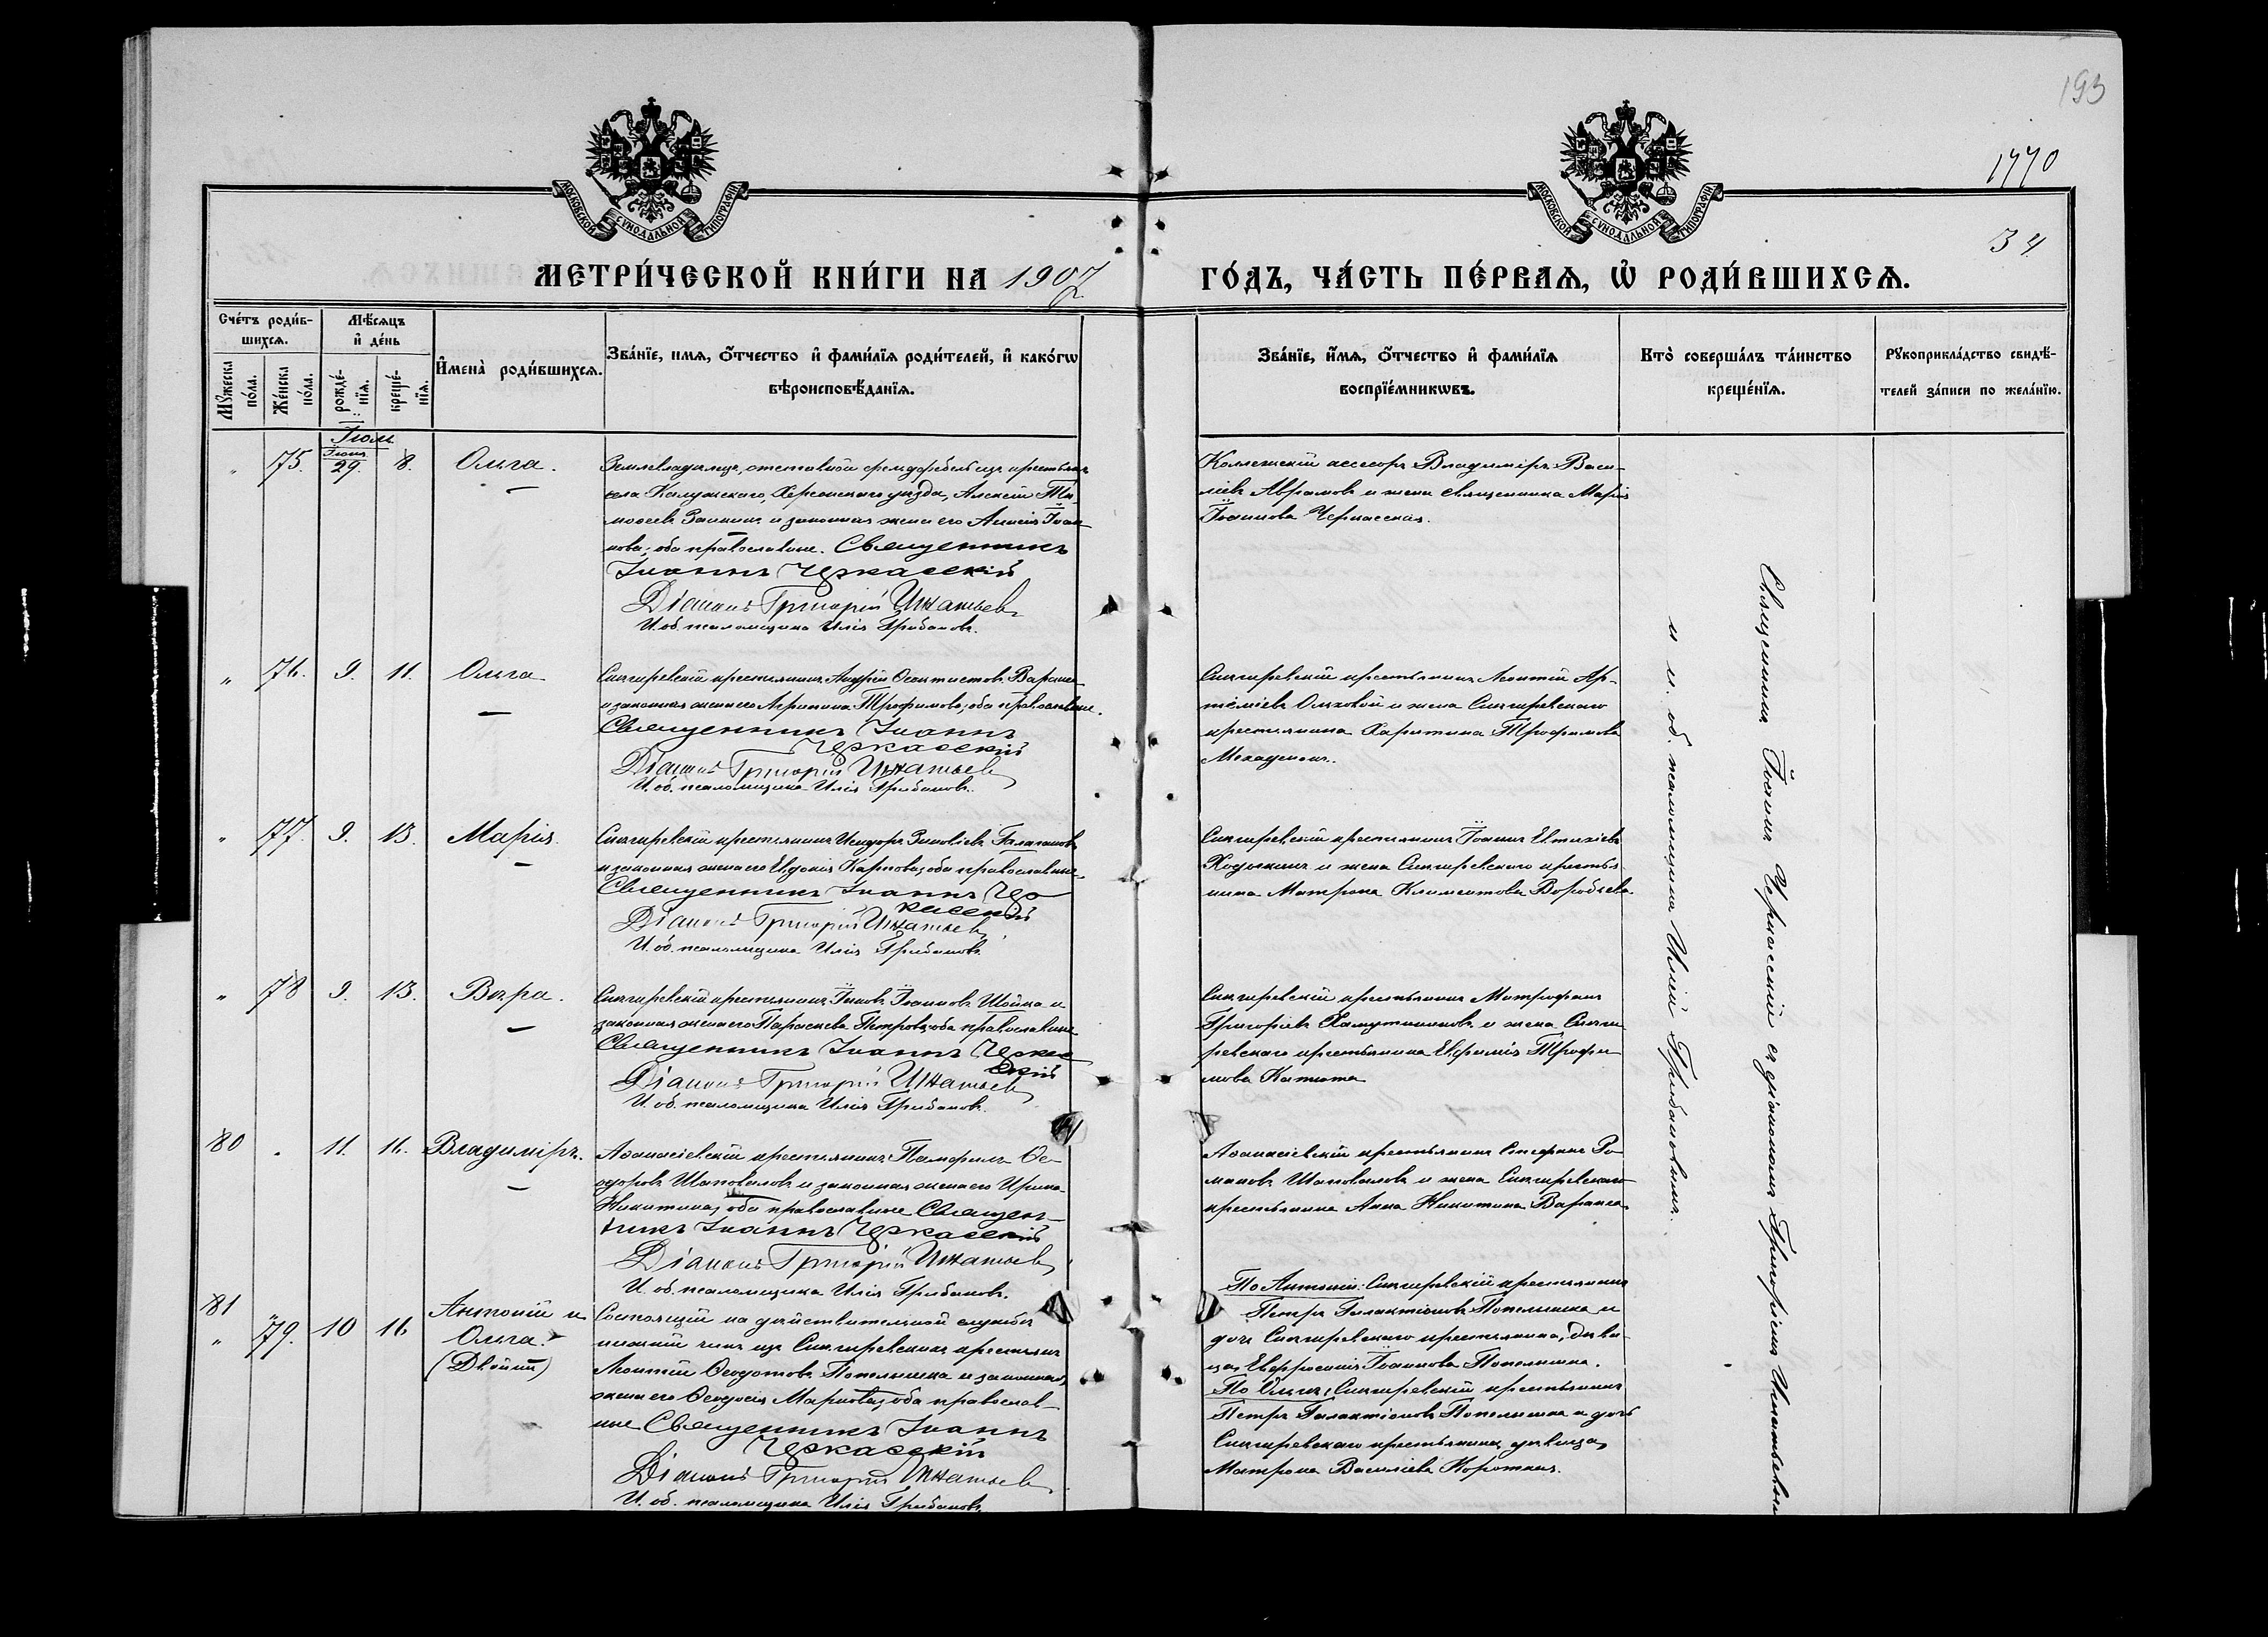 193
1770
34
МОСКОВСКОЙ СѴНОДАЛЬНОЙ ТИПОГРАФІИ
МОСКОВСКОЙ СѴНОДАЛЬНОЙ ТИПОГРАФІИ
МЕТРИ́ЧЕСКОЙ КНИ́ГИ НА 1907
ГО́ДЪ, ЧА́СТЬ ПЕ́РВАѦ, Ѡ҆ РОДИ́ВШИХСѦ.
Сче́тъ роди́в-
шихсѧ.
Мꙋжеска по́ла.
Же́нска по́ла.
Мѣ́сѧцъ
и҆ де́нь
рожде́-
нїѧ.
креще́-
нїѧ.
И҆мена̀ роди́вшихсѧ.
Зва́нїе, имѧ, ѻ҆́тчество и҆ фами́лїѧ роди́телей, и҆ како́гѡ
вѣроисповѣ́данїѧ.
Зва́нїе, и҆́мѧ, ѻ҆́тчество и҆ фами́лїѧ
воспрїе́мникѡвъ.
Кто̀ соверша́лъ та́инство
креще́нїѧ.
Рꙋкоприкла́дство свидѣ́-
телей за́писи по жела́нїю.
Іюль
" 75. Іюня 29. 8. Ольга.
Землевладелецъ, отставной фельдфебель изъ крестьянъ
села Калужскаго, Херсонскаго уѣзда, Алексій Ти-
моѳеевъ и законная жена его Іоан-
нова; оба православные. Священникъ
Іоаннъ Черкасскій
Діаконъ Григорій Игнатьевъ
И. об. псаломщика Илія Грибановъ.
Коллежскій асессоръ Владиміръ Васи-
ліевъ Аврамовъ и жена священника Марія
Іоаннова Черкасская.
" 76. 9. 11. Ольга
Снигиревскій крестьянинъ Андрей Ѳеоктистовъ
и законная жена его Агрипина Трофимова; оба православные.
Священникъ Іоаннъ
Черкасскій
Діаконъ Григорій Игнатьевъ
И. об. псаломщика Илія Грибановъ.
Снигиревскій крестьянинъ Леонтій Ар-
теміевъ и жена Снигиревскаго
крестьянина Харитина Трофимова
" 77. 9. 13. Марія
Снигиревскій крестьянинъ Исидоръ Зиновіевъ Галагановъ
и законная жена его Евдокія Карпова; оба православные
Священникъ Іоаннъ Чер
касскій
Діаконъ Григорій Игнатьевъ
И. об. псаломщика Илія Грибановъ.
Снигиревскій крестьянинъ Іоаннъ Евтихіевъ
и жена Снигиревскаго крестья
нина Матрона Климентова Воробьева.
" 78 9. 13. Вѣра.
Снигиревскій крестьянинъ Іаковъ Іоанновъ Шойка и
законная жена его Параскева Петрова; оба православные
Священникъ Іоаннъ Черкас
скій
Діаконъ Григорій Игнатьевъ
И. об. псаломщика Илія Грибановъ.
Снигиревскій крестьянинъ Митрофанъ
Григоріевъ и жена Сниги
ревскаго крестьянина Евфимія Трофи
мова
80 " 11. 16. Владиміръ.
Аѳанасіевскій крестьянинъ Памфилъ Ѳе-
одоровъ Шаповаловъ и законная жена его Ирина
Никитина, оба православные Священ-
никъ Іоаннъ Черкасскій
Діаконъ Григорій Игнатьевъ
И. об. псаломщика Илія Грибановъ.
Аѳанасіевскій крестьянинъ Стефанъ Ро
мановъ Шаповаловъ и жена Снигиревскаго
крестьянина Анна Никитина
81 " 79. 10 16 Антоній и
Ольга.
(Двойни)
Состоящій на дѣйствительной службѣ
нижній чинъ изъ Снигиревскихъ крестьянъ
Леонтій Ѳеодотовъ Попелышка и законная
жена его Ѳеодосія Маркова; оба православ-
ные Священникъ Іоаннъ
Черкасскій
Діаконъ Григорій Игнатьевъ
И. об. псаломщика Илія Грибановъ
По Антоніи: Снигиревскій крестьянинъ
Петръ Галактіоновъ Попелышка и
дочь Снигиревскаго крестьянина, дѣви-
ца Евфросинія Іоаннова Попелышка.
По Ольгѣ: Снигиревскій крестьянинъ
Петръ Галактіоновъ Попелышка и дочь
Снигиревскаго крестьянина дѣвица
Матрона Василіева
Священникъ Іоаннъ Черкасскій съ діакономъ Григоріемъ Игнатьевымъ
и и. об. псаломщика Иліей Грибановымъ.